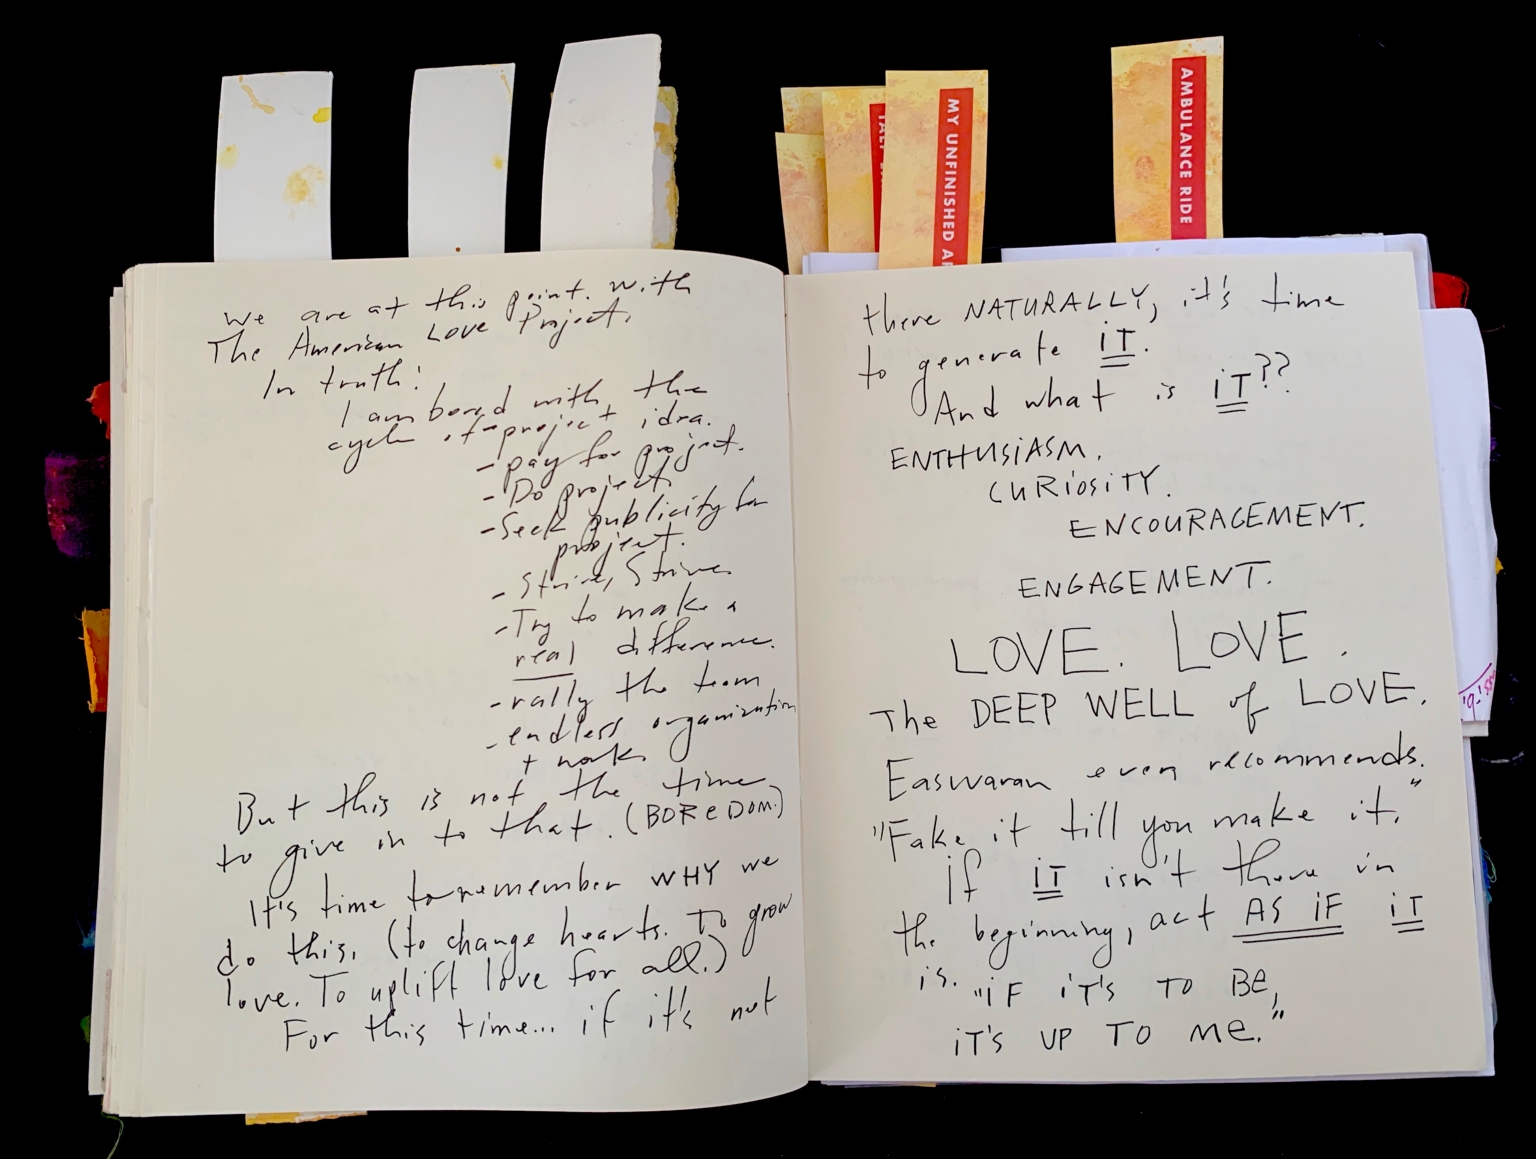 MY UNFINISHED
AMBULANCE RIDE
We are at this point. With
The American Love Project.
In truth:
I am bored with the
cycle of - project idea.
- pay for project.
- Do project.
- Seek publicity for
project.
- Strive, Strive
- Try to make a
real difference.
- rally the team
- endless organization
+ work.
But this is not the time
to give in to that. (BOREDOM.)
It's time to remember WHY we
do this. (to change hearts. To grow
love. To uplift love for all.)
For this time... if it's not
there NATURALLY, it's time
to generate iT.
And what is iT??
ENTHUSiASM.
CURiOSiTY.
ENCOURAGEMENT.
ENGAGEMENT.
LOVE. LOVE.
The DEEP WELL of LOVE.
Easwaran even recommends.
"Fake it till you make it."
If iT isn't there in
the beginning, act AS iF iT
is. "iF iT'S TO BE,
iT'S UP TO ME."